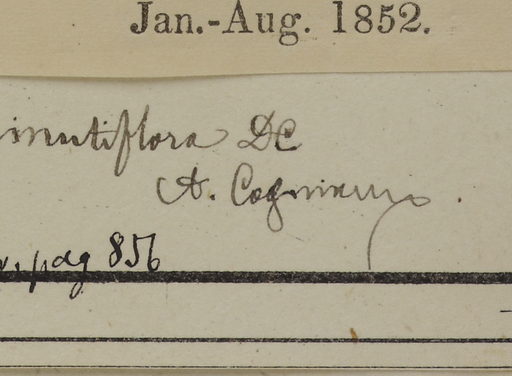 Jan.-Aug. 1852.
inutiflora DC
A. Cogniaux.
pag 856